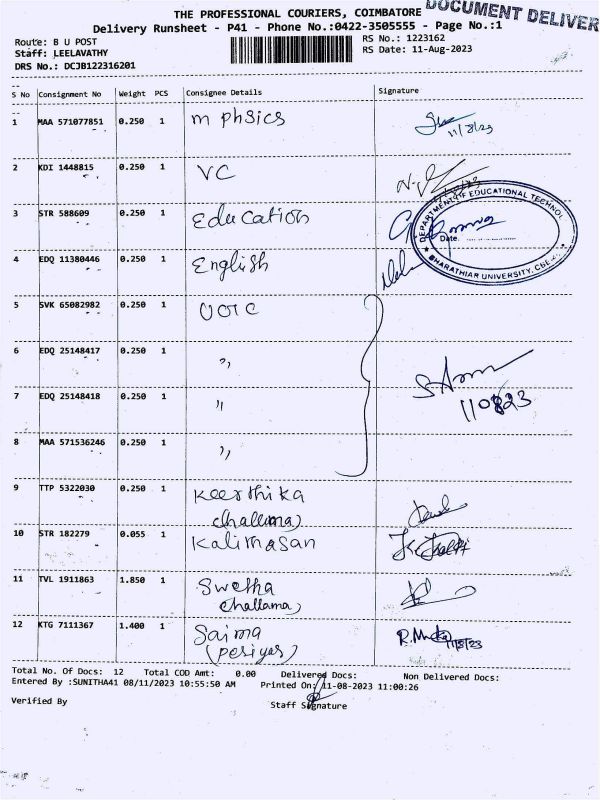 DOCUMENT DELIVER
THE PROFESSIONAL COURIERS, COIMBATORE
Delivery Runsheet - P41 - Phone No.:0422-3505555 - Page No.:1
Route: B U POST
RS No.: 1223162
Staff: LEELAVATHY
RS Date: 11-Aug-2023
DRS No.: DCJB122316201
S No Consignment No Weight PCS Consignee Details Signature
1 MAA 571077851 0.250 1 m phsics 11/8/23
2 KDI 1448815 0.250 1 VC
3 STR 588609 0.250 1 Education
DEPARTMENT OF EDUCATIONAL TECHNOL
Date.
BHARATHIAR UNIVERSITY, CBE
4 EDQ 11380446 0.250 1 English
5 SVK 65082982 0.250 1 UOIC
6 EDQ 25148417 0.250 1 ,,
7 EDQ 25148418 0.250 1 ,, 110823
8 MAA 571536246 0.250 1 ,,
9 TTP 5322030 0.250 1 Keerthika
(challama)
10 STR 182279 0.055 1 Kalimasan
11 TVL 1911863 1.850 1 Swetha
(challama)
12 KTG 7111367 1.400 1 Saima 11/8/23
(periyar)
Total No. Of Docs: 12 Total COD Amt: 0.00 Delivered Docs: Non Delivered Docs:
Entered By :SUNITHA41 08/11/2023 10:55:50 AM Printed On: 11-08-2023 11:00:26
Verified By
Staff Signature